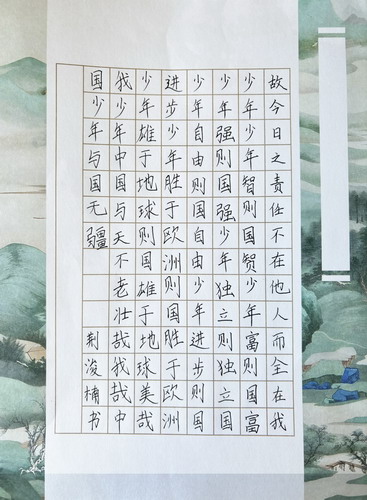 故今日之责任不在他人而全在我
少年少年智则国智少年富则国富
少年强则国强少年独立则独立国
少年自由则国自由少年进步则国
进步少年胜于欧洲则国胜于欧洲
少年雄于地球则国雄于地球美哉
我少年中国与天不老壮哉我哉中
国少年与国无疆
荆浚楠书